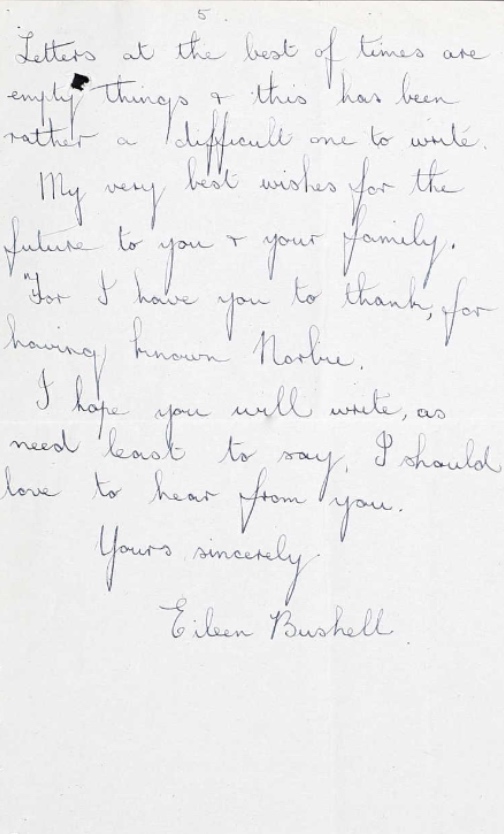 5.
Letters at the best of times are
empty things & this has been
rather a difficult one to write.
My very best wishes for the
future to you & your family.
"For I have you to thank, for
having known Norbie.
I hope you will write, as
need least to say, I should
love to hear from you.
Yours sincerely.
Eileen Bushell.